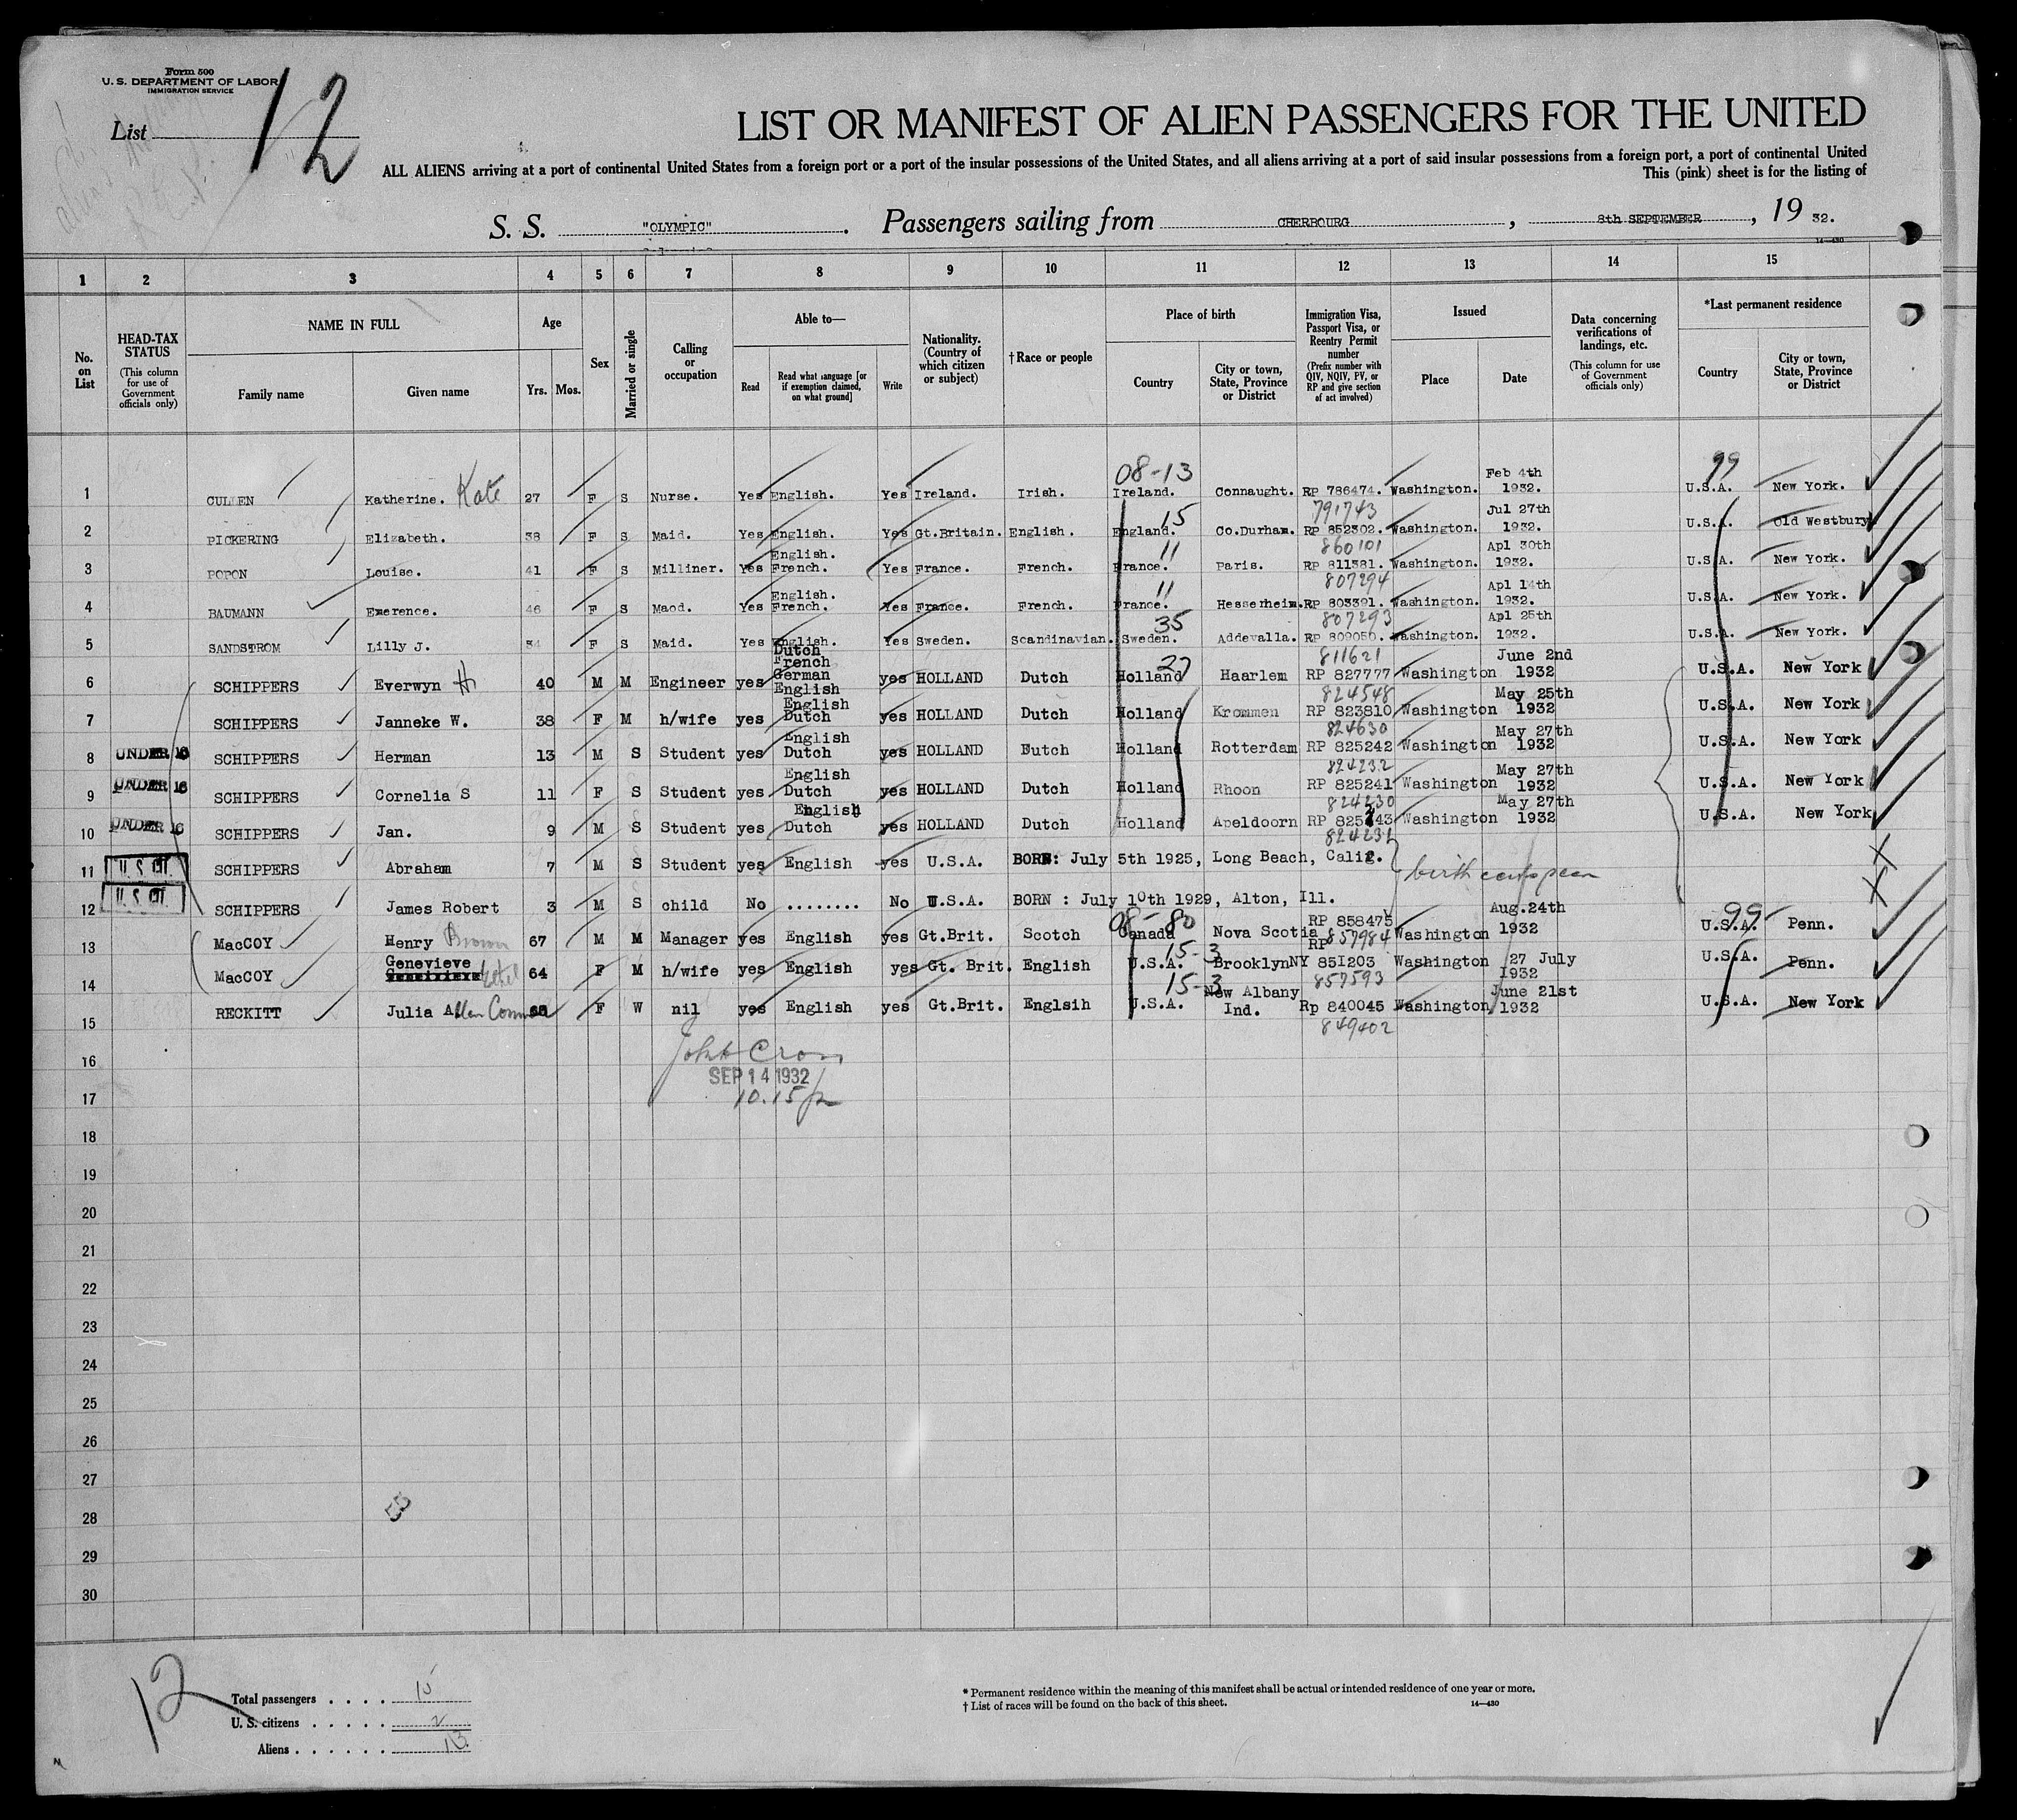 Form 500
U. S. DEPARTMENT OF LABOR
IMMIGRATION SERVICE
List 12
LIST OR MANIFEST OF ALIEN PASSENGERS FOR THE UNITED
ALL ALIENS arriving at a port of continental United States from a foreign port or a port of the insular possessions of the United States, and all aliens arriving at a port of said insular possessions from a foreign port, a port of continental United
This (pink) sheet is for the listing of
S. S. "OLYMPIC". Passengers sailing from CHERBOURG, 8th SEPTEMBER, 19 32.
14—430
1 2 3 4 5 6 7 8 9 10 11 12 13 14 15
No. on List
HEAD-TAX STATUS (This column for use of Government officials only)
NAME IN FULL
Family name
Given name
Age
Yrs. Mos.
Sex
Married or single
Calling or occupation
Able to—
Read
Read what language [or if exemption claimed, on what ground]
Write
Nationality. (Country of which citizen or subject)
†Race or people
Place of birth
Country
City or town, State, Province or District
Immigration Visa, Passport Visa, or Reentry Permit number (Prefix number with QIV, NQIV, PV, or RP and give section of act involved)
Issued
Place
Date
Data concerning verifications of landings, etc. (This column for use of Government officials only)
*Last permanent residence
Country
City or town, State, Province or District
08-13 99 Feb 4th
1 CULLEN Katherine. Kate 27 F S Nurse. Yes English. Yes Ireland. Irish. Ireland. Connaught. RP 786474. Washington. 1932. U.S.A. New York.
15 791743 Jul 27th
2 PICKERING Elizabeth. 38 F S Maid. Yes English. Yes Gt.Britain. English. England. Co.Durham. RP 852302. Washington. 1932. U.S.A. Old Westbury
English. 11 860101 Apl 30th
3 POPON Louise. 41 F S Milliner. Yes French. Yes France. French. France. Paris. RP 811381. Washington. 1932. U.S.A. New York.
English. 11 807294 Apl 14th
4 BAUMANN Emerence. 46 F S Maod. Yes French. Yes France. French. France. Hesserheim. RP 803391. Washington. 1932. U.S.A. New York.
35 807293 Apl 25th
5 SANDSTROM Lilly J. 34 F S Maid. Yes English. Yes Sweden. Scandinavian. Sweden. Addevalla. RP 809050. Washington. 1932. U.S.A. New York.
Dutch French German 27 811621 June 2nd
6 SCHIPPERS Everwyn H 40 M M Engineer yes English yes HOLLAND Dutch Holland Haarlem RP 827777 Washington 1932 U.S.A. New York
English 824548 May 25th
7 SCHIPPERS Janneke W. 38 F M h/wife yes Dutch yes HOLLAND Dutch Holland Krommen RP 823810 Washington 1932 U.S.A. New York
English 824630 May 27th
8 UNDER 16 SCHIPPERS Herman 13 M S Student yes Dutch yes HOLLAND Futch Holland Rotterdam RP 825242 Washington 1932 U.S.A. New York
English 824232 May 27th
9 UNDER 16 SCHIPPERS Cornelia S 11 F S Student yes Dutch yes HOLLAND Dutch Holland Rhoon RP 825241 Washington 1932 U.S.A. New York
English 824230 May 27th
10 UNDER 16 SCHIPPERS Jan. 9 M S Student yes Dutch yes HOLLAND Dutch Holland Apeldoorn RP 825243 Washington 1932 U.S.A. New York
824231
11 SCHIPPERS Abraham 7 M S Student yes English yes U.S.A. BORN: July 5th 1925, Long Beach, Calif.
birth
12 SCHIPPERS James Robert 3 M S child No ........ No U.S.A. BORN : July 10th 1929, Alton, Ill.
08-80 RP 858475 Aug.24th 99
13 MacCOY Henry Brown 67 M M Manager yes English yes Gt.Brit. Scotch Canada Nova Scotia RP 857984 Washington 1932 U.S.A. Penn.
Genevieve 15-3 27 July
14 MacCOY Ethel 64 F M h/wife yes English yes Gt. Brit. English U.S.A. Brooklyn NY 851203 Washington 1932 U.S.A. Penn.
15-3 New Albany 857593 June 21st
15 RECKITT Julia Allen 68 F W nil yes English yes Gt.Brit. Englsih U.S.A. Ind. Rp 840045 Washington, 1932 U.S.A. New York
849402
16
John Cron
SEP 14 1932
17
10.15 p
18
19
20
21
22
23
24
25
26
27
28
29
30
12
Total passengers . . . . 15
U. S. citizens . . . . . 2
Aliens . . . . . . 13
* Permanent residence within the meaning of this manifest shall be actual or intended residence of one year or more.
† List of races will be found on the back of this sheet.
14—430